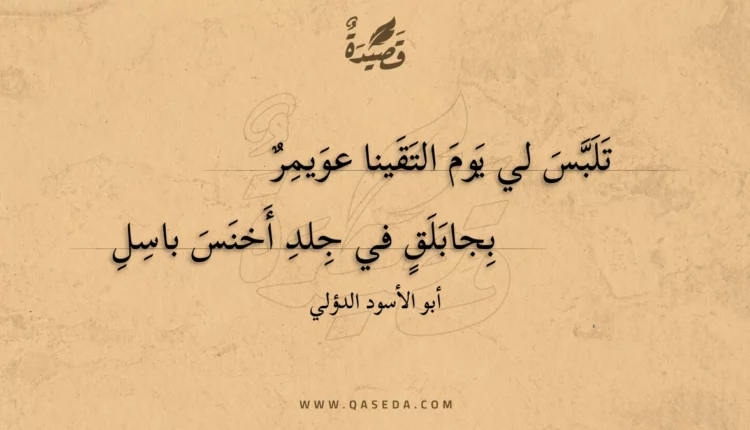 قَصِيْدَةٌ
تَلَبَّسَ لي يَومَ التَقَينا عوَيمِرٌ
بِجابَلَقٍ في جِلدِ أَخنَسَ باسِلِ
أبو الأسود الدؤلي
WWW.QASEDA.COM